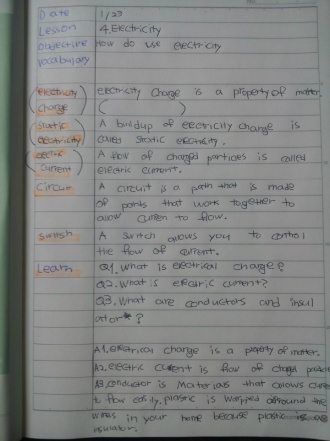 Date 1/23
Lesson 4. Electricity
Objective How do use electricity
Vocabulary
electricity electricity Charge is a property of matter.
Charge ( )
Static A buildup of electricity Charge is
electricity called static electricity.
electric A flow of charged particles is called
Current electric current.
Circuit A circuit is a path that is made
of parts that work together to
allow current to flow.
switch A switch allows you to control
the flow of current.
Learn Q1. What is electrical charge?
Q2. What is electric current?
Q3. What are conductors and insul
ator*?
A1. electrical charge is a property of matter.
A2. electric current is flow of charged
A3. conductor is materials that allows
to flow easily, plastic is wrapped around the
wires in your home because plastic is
insulator.